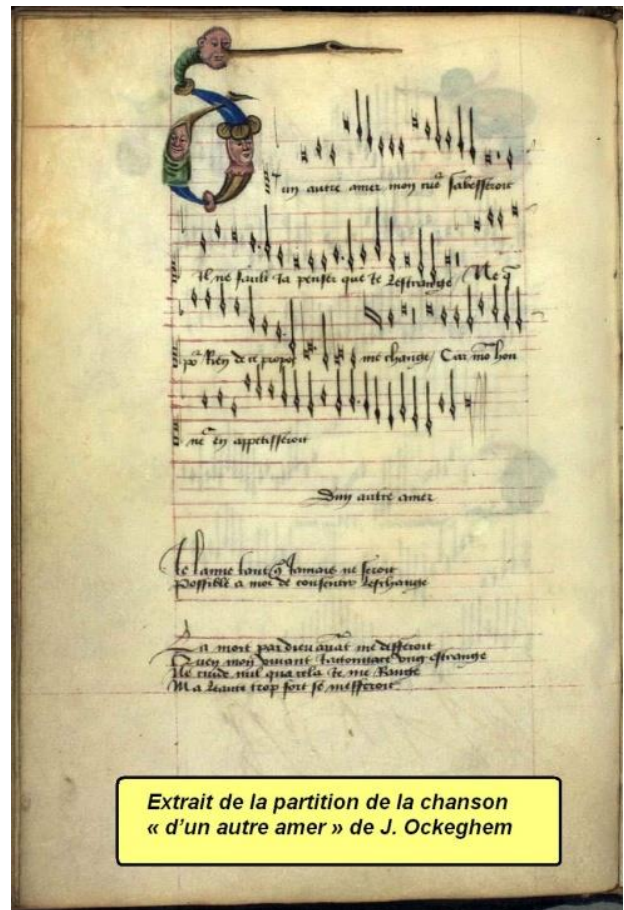 un autre amer mon cueʳ sabesseroit
Il ne fault ia penser que ie lestrange / Ne q̃
poʳ Rien de ce propos me change / Car mõ hon
neʳ en appetisseroit
Dun autre amer
Je lanne tant q̃ Jamais ne seroit
Possible a moi de consentir leschange
La mort par dieu auãt me desferoit
Quen mon viuant Jacointace ung estrange
Ne cuide nul qua cela Je me Range
Ma leaute trop fort se mesferoit
Extrait de la partition de la chanson
« d'un autre amer » de J. Ockeghem